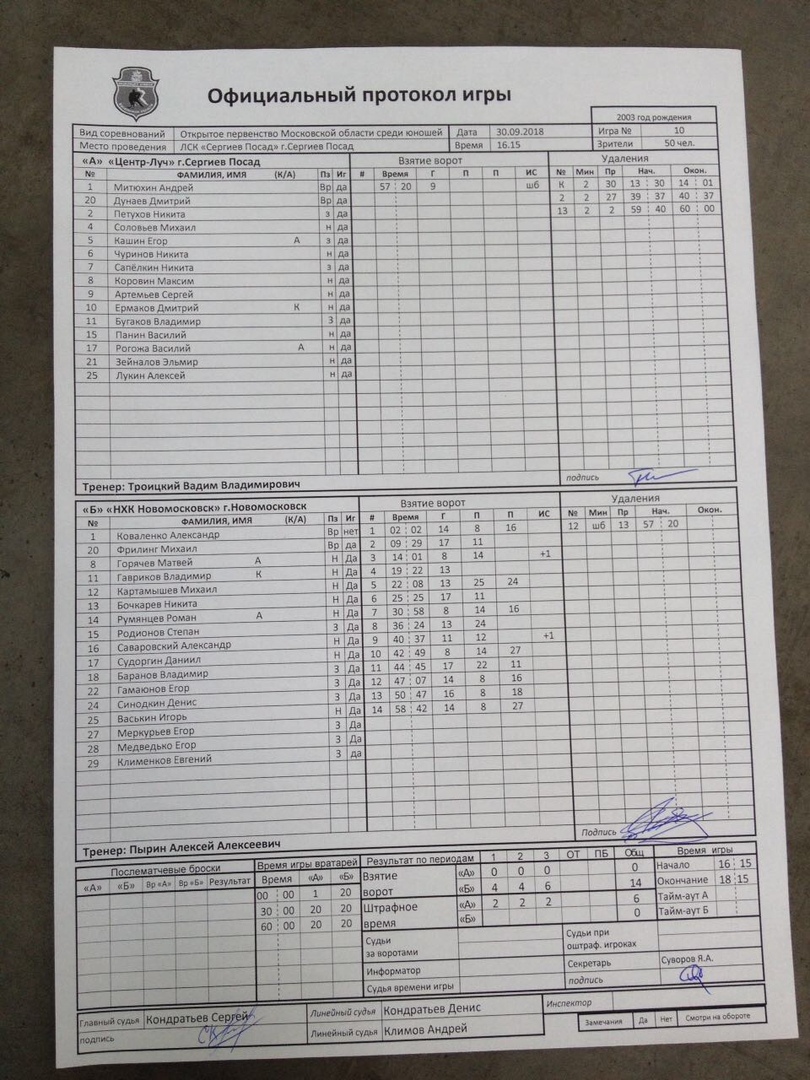 Официальный протокол игры
2003 год рождения
Вид соревнований Открытое первенство Московской области среди юношей Дата 30.09.2018 Игра № 10
Место проведения ЛСК «Сергиев Посад» г.Сергиев Посад Время 16.15 Зрители 50 чел.
«А» «Центр-Луч» г.Сергиев Посад Взятие ворот Удаления
№ ФАМИЛИЯ, ИМЯ (К/А) Пз Иг # Время Г П П ИС № Мин Пр Нач. Окон.
1 Митюхин Андрей Вр да 57 : 20 9 шб К 2 30 13 : 30 14 : 01
20 Дунаев Дмитрий Вр да 2 2 27 39 : 37 40 : 37
2 Петухов Никита з да 13 2 2 59 : 40 60 : 00
4 Соловьев Михаил н да
5 Кашин Егор А з да
6 Чуринов Никита н да
7 Сапёлкин Никита з да
8 Коровин Максим н да
9 Артемьев Сергей н да
10 Ермаков Дмитрий К н да
11 Бугаков Владимир З да
15 Панин Василий н да
17 Рогожа Василий А н да
21 Зейналов Эльмир н да
25 Лукин Алексей н да
Тренер: Троицкий Вадим Владимирович подпись
«Б» «НХК Новомосковск» г.Новомосковск Взятие ворот Удаления
№ ФАМИЛИЯ, ИМЯ (К/А) Пз Иг # Время Г П П ИС № Мин Пр Нач. Окон.
1 Коваленко Александр Вр нет 1 02 : 02 14 8 16 12 шб 13 57 : 20
20 Фрилинг Михаил Вр да 2 09 : 29 17 11
8 Горячев Матвей А Н Да 3 14 : 01 8 14 +1
11 Гавриков Владимир К Н Да 4 19 : 22 13
12 Картамышев Михаил Н Да 5 22 : 08 13 25 24
13 Бочкарев Никита Н Да 6 25 : 25 17 11
14 Румянцев Роман А Н Да 7 30 : 58 8 14 16
15 Родионов Степан З Да 8 36 : 24 13 24
16 Саваровский Александр Н Да 9 40 : 37 11 12 +1
17 Судоргин Даниил Н Да 10 42 : 49 8 14 27
18 Баранов Владимир З Да 11 44 : 45 17 22 11
22 Гамаюнов Егор З Да 12 47 : 07 14 8 16
24 Синодкин Денис З Да 13 50 : 47 16 8 18
25 Васькин Игорь Н Да 14 58 : 42 14 8 27
27 Меркурьев Егор З Да
28 Медведько Егор З Да
29 Клименков Евгений З да
Тренер: Пырин Алексей Алексеевич Подпись
Послематчевые броски Время игры вратарей Результат по периодам 1 2 3 ОТ ПБ Общ Время игры
«А» «Б» Вр «А» Вр «Б» Результат Время «А» «Б» Взятие ворот «А» 0 0 0 0 Начало 16 : 15
00 : 00 1 20 «Б» 4 4 6 14 Окончание 18 : 15
30 : 00 20 20 Штрафное время «А» 2 2 2 6 Тайм-аут А
60 : 00 20 20 «Б» 0 Тайм-аут Б
Судьи за воротами Судьи при оштраф. игроках
Информатор Секретарь Суворов Я.А.
Судья времени игры подпись
Главный судья Кондратьев Сергей Линейный судья Кондратьев Денис Инспектор
подпись Линейный судья Климов Андрей Замечания Да Нет Смотри на обороте